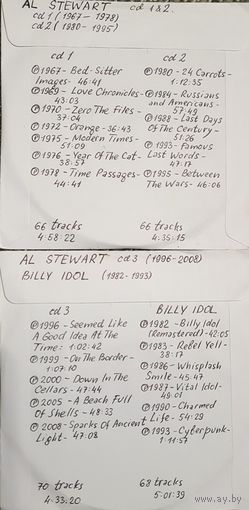 AL STEWART cd 1&2.
cd 1 (1967-1978)
cd 2 (1980-1995)
cd 1
℗1967-Bed-Sitter
Images- 46:41
℗1969-Love Chronicles-
43:03
℗1970-Zero The Files-
37:04
℗1972-Orange-36:43
℗1975-Modern Times-
51:09
℗1976-Year Of The Cat-
38:57
℗1978-Time Passages-
44:41
66 tracks
4:58:22
cd 2
℗1980-24 Carrots-
1:12:35
℗1984-Russians
and Americans-
57:49
℗1988-Last Days
Of The Century-
51:26
℗1993-Famous
Last Words-
47:17
℗1995-Between
The Wars-46:06
66 tracks
4:35:15
AL STEWART cd3 (1996-2008)
BILLY IDOL (1982-1993)
cd 3
℗1996-Seemed Like
A Good Idea At The
Time: 1:02:42
℗1999-On The Border-
1:07:10
℗2000-Down In The
Cellars-47:44
℗2005-A Beach Full
Of Shells-48:33
℗2008-Sparks Of Ancient
Light-47:08
70 tracks
4:33:20
BILLY IDOL
℗1982-Billy Idol
(Remastered)-42:05
℗1983-Rebel Yell-
38:17
℗1986-Whiplash
Smile-45:47
℗1987-Vital Idol-
49:01
℗1990-Charmed
+ Life-54:29
℗1993-Cyberpunk-
1:11:57
68 tracks
5:01:39